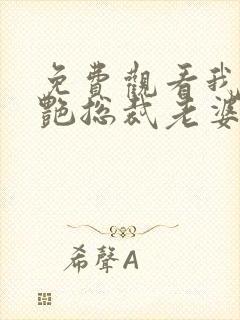 免費觀看我
艷總裁老婆
希聲A